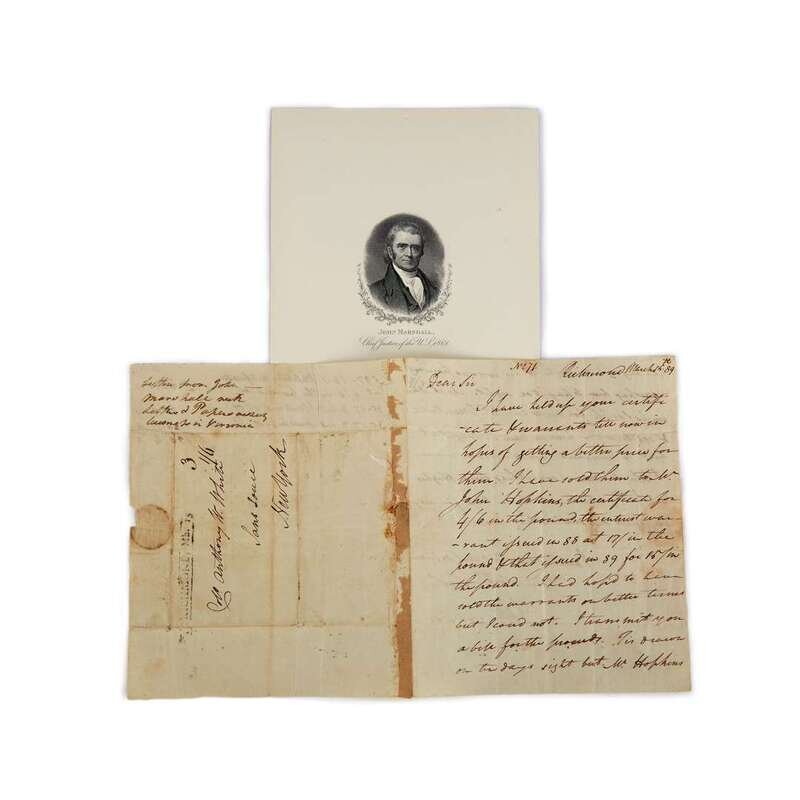 JOHN MARSHALL,
Chief Justice of the U.S. 1801.
Letter from John
Marshall
Letter & Papers
3
1/6
Colo. Anthony W. White
Sans Souci
New York
No 71
Richmond March 89
Dear Sir
I have held up your certifi
-cate & warrants till now in
hopes of getting a better price for
them. I have sold them to Mr.
John Hopkins, the certificate for
4/6 in the pound, the interest war-
-rant issued in 88 at 17/ in the
pound & that issued in 89 for 15/ in
the pound. I had hoped to have
sold the warrants on better terms
but I coud not. I transmit you
a bill for the proceeds. Tis drawn
on ten days sight but Mr. Hopkins